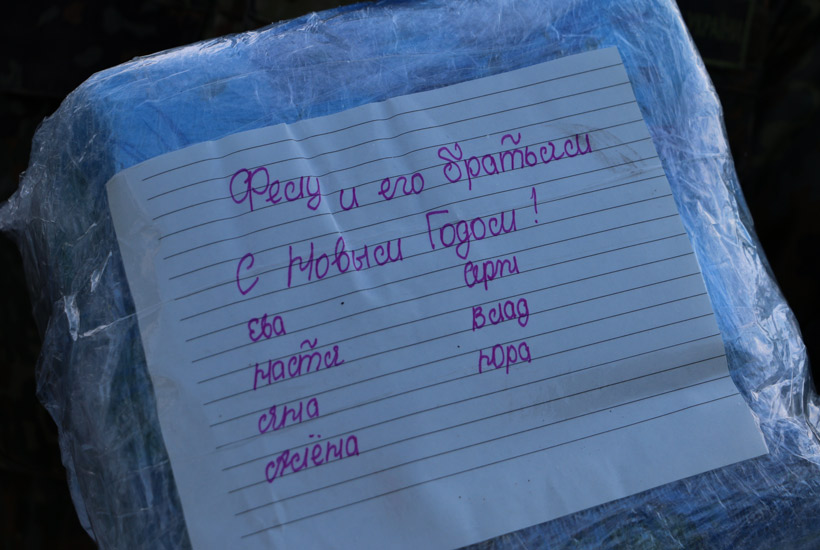 Фему и его братьям
С Новым Годом!
Ева
Настя
Яна
Алёна
Влад
Юра